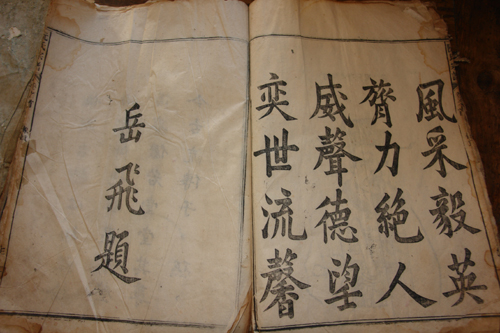 風采毅英
膂力絕人
威聲德望
奕世流馨
岳飛題